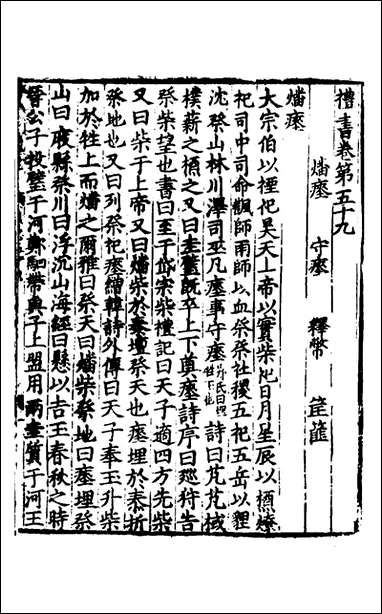 禮書卷第五十九
燔瘞 守瘞 釋幣 筐篚
燔瘞
大宗伯以禋祀昊天上帝以實柴祀日月星辰以槱燎
祀司中司命飌師雨師以血祭祭社稷五祀五岳以貍
沈祭山林川澤司巫凡瘞事守瘞詩曰芃芃棫
樸薪之槱之又曰圭璧既卒上下奠瘞詩序曰廵狩告
祭柴望也書曰至于岱宗柴禮記曰天子適四方先柴
又曰柴于上帝又曰燔柴於泰壇祭天也瘞埋於泰折
祭地也又曰列祭祀瘞繒韓詩外傳曰天子奉玉升柴
加於牲上而燔之爾雅曰祭天曰燔柴祭地曰瘞埋祭
山曰庪縣祭川曰浮沉山海經曰縣以吉玉春秋之時
晉公子投璧于河鄭駟帶與子上盟用兩珪質于河王